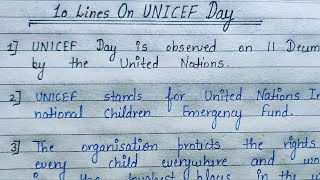 10 Lines On UNICEF Day
1] UNICEF Day is observed on 11 Decem
by the United Nations.
2] UNICEF stands for United Nations In
national Children Emergency Fund.
3] The organisation protects the rights
every child everywhere and wo
in the